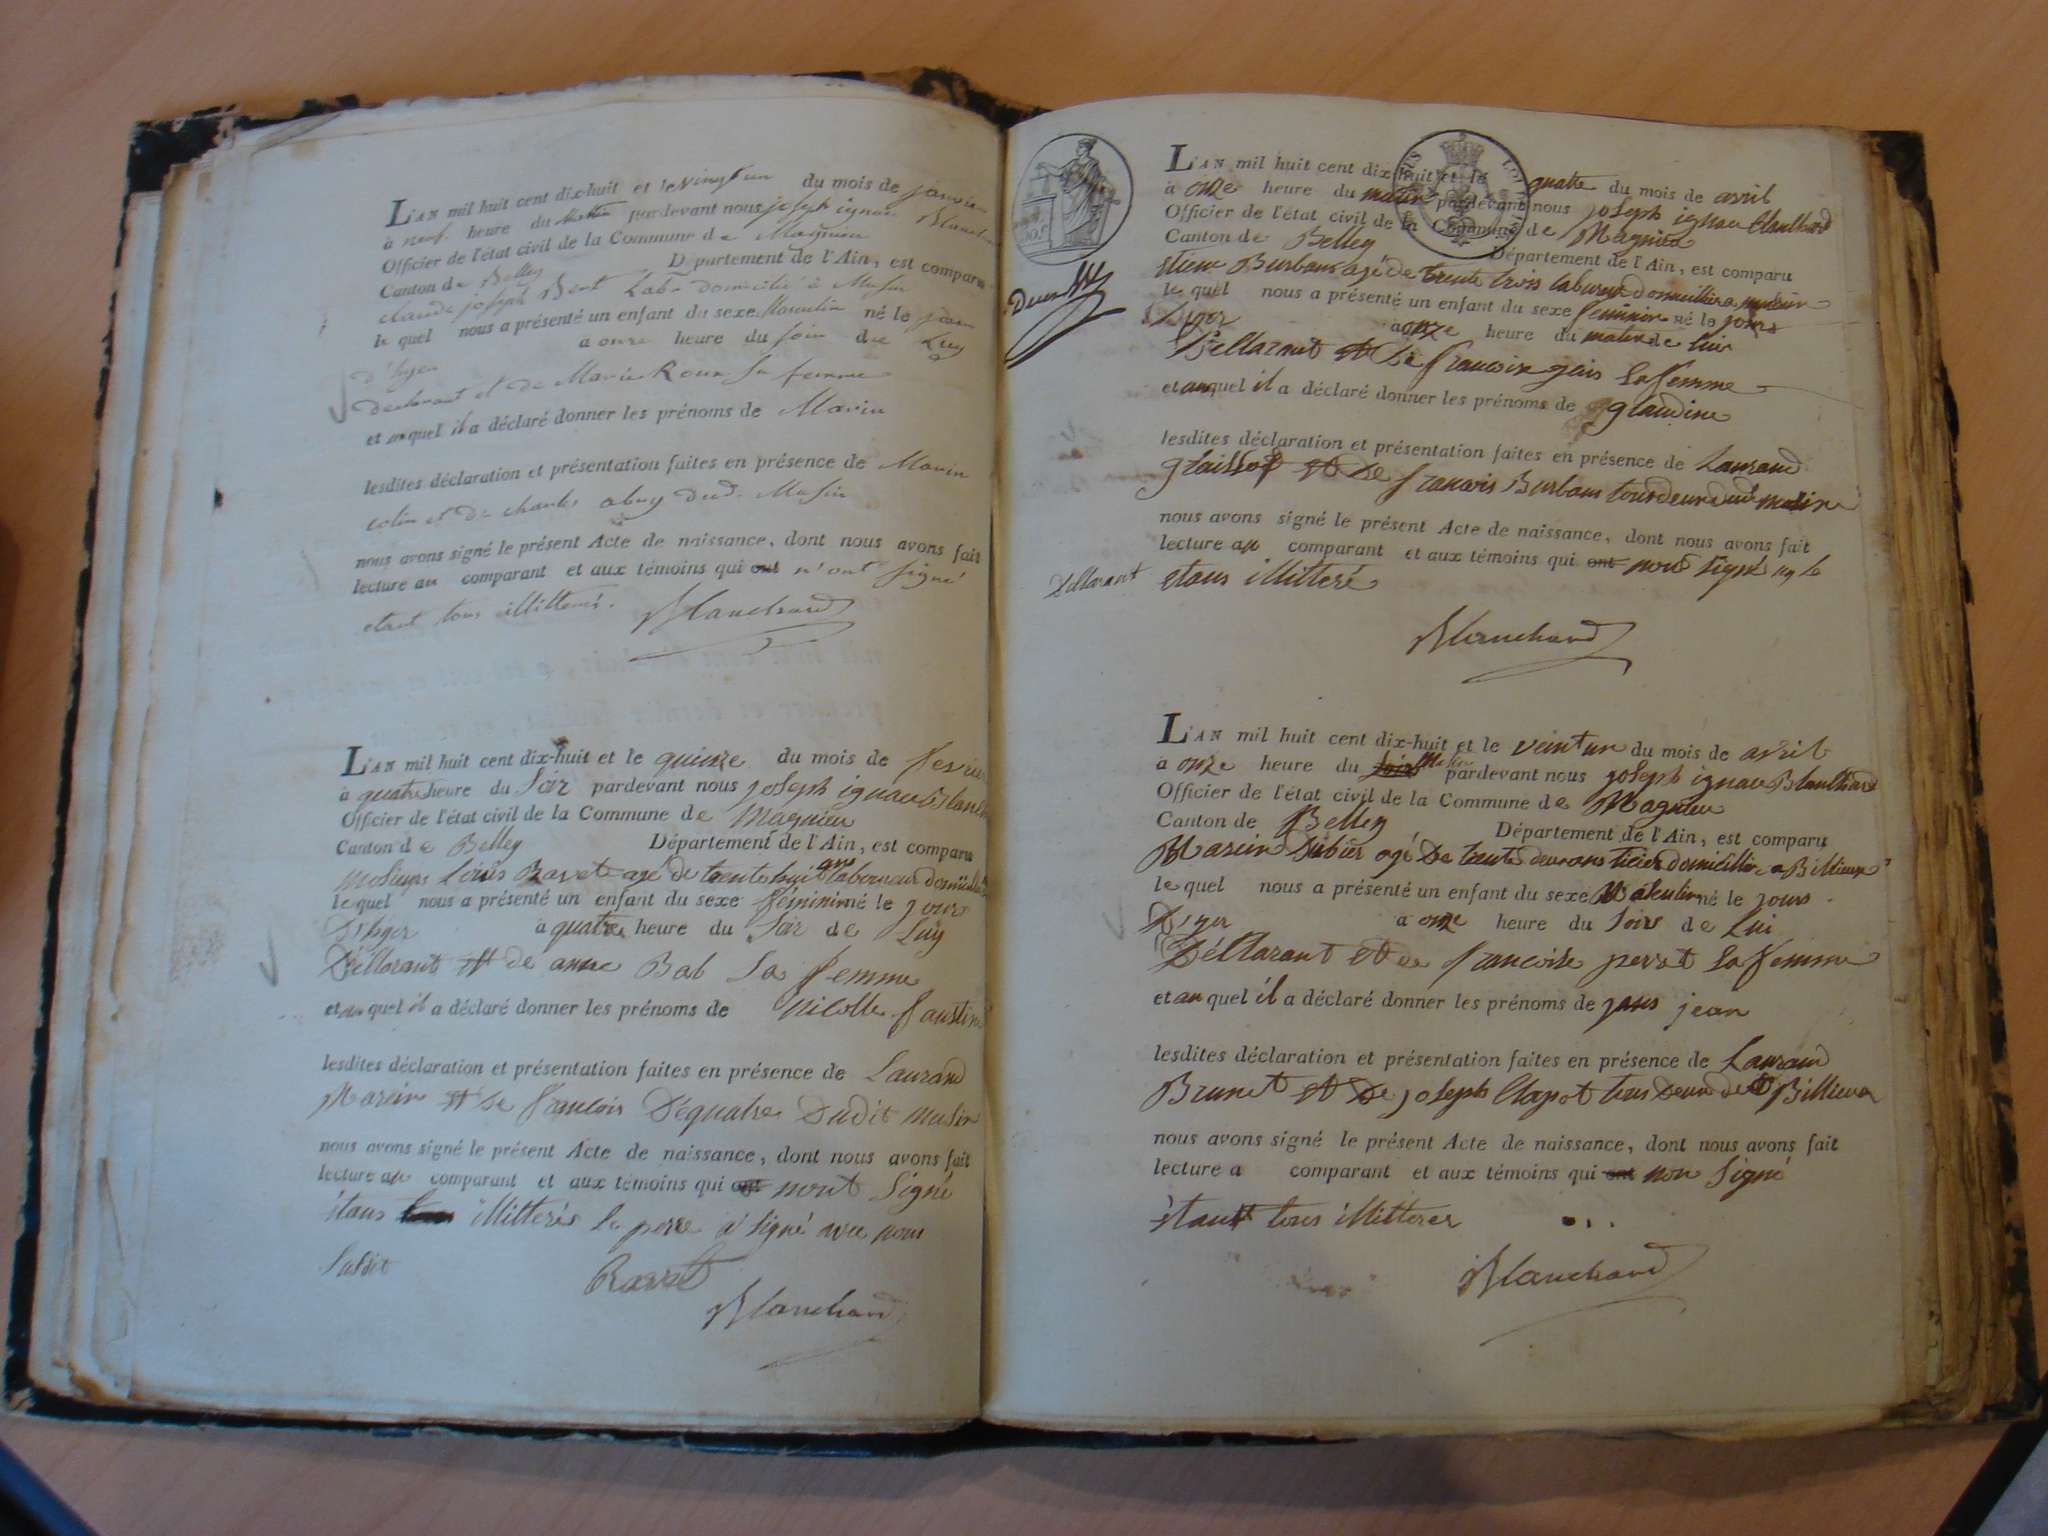 L'AN mil huit cent dix-huit et le vingt un du mois de janvier
à neuf heure du matin pardevant nous joseph ignace Blanchard
Officier de l'état civil de la Commune de Magnieu
Canton de Belley Département de l'Ain, est comparu
claude joseph Labr domicilié à Musin
le quel nous a présenté un enfant du sexe Masculin né le jour
d'hyer a onze heure du soir de Luy
declarant et de Marie Roux sa femme
et auquel il a déclaré donner les prénoms de Marin
lesdites déclaration et présentation faites en présence de Marin
colin et de charles dud. Musin
nous avons signé le présent Acte de naissance, dont nous avons fait
lecture au comparant et aux témoins qui ont n'ont signé
etant tous illitterés.
Blanchard
L'AN mil huit cent dix-huit et le quinze du mois de fevrier
à quatre heure du Soir pardevant nous joseph ignace Blanchard
Officier de l'état civil de la Commune de Magnieu
Canton de Belley Département de l'Ain, est comparu
Louis Ravet agé de trente huit ans laboureur
le quel nous a présenté un enfant du sexe féminin né le jours
D'hyer à quatre heure du Soir de Luy
Déllarant et de anne Bab Sa femme
et au quel il a déclaré donner les prénoms de Nicolle faustine
lesdites déclaration et présentation faites en présence de Laurand
Marein et de francois Dequatre Dudit musin
nous avons signé le présent Acte de naissance, dont nous avons fait
lecture au comparant et aux témoins qui ont nont Signé
étans tous illitterés le pere a signé avec nous
Susdit
Ravet
Blanchard
L'AN mil huit cent dix-huit et le quatre du mois de avril
à onze heure du matin pardevant nous joseph ignace Blanchard
Officier de l'état civil de la Commune de Magnieu
Canton de Belley Département de l'Ain, est comparu
Burbans agé de trente trois laboureur domicillié a musin
le quel nous a présenté un enfant du sexe feminin né le jours
D'yer à onze heure du matin de Lui
Déllarant et de francoise jais Sa femme
et auquel il a déclaré donner les prénoms de glaudine
lesdites déclaration et présentation faites en présence de Laurand
et de francois Burbans tous deux dud musin
nous avons signé le présent Acte de naissance, dont nous avons fait
lecture au comparant et aux témoins qui ont nont Signé ny le
Déllarant
etans illitteré
Blanchard
L'AN mil huit cent dix-huit et le veint un du mois de avril
à onze heure du soir matin pardevant nous joseph ignace Blanchard
Officier de l'état civil de la Commune de Magnieu
Canton de Belley Département de l'Ain, est comparu
Marein Dubier agé de trente deux ans domicillié a Billieux
le quel nous a présenté un enfant du sexe Masculin né le jours
D'yer à onze heure du Soirs de Lui
Déllarant et de francoise peros Sa femme
et au quel il a déclaré donner les prénoms de jans jean
lesdites déclaration et présentation faites en présence de Laurand
Brunet et de joseph Clapot tous deux de Billieux
nous avons signé le présent Acte de naissance, dont nous avons fait
lecture a comparant et aux témoins qui ont non Signé
étant tous illitterer
Blanchard